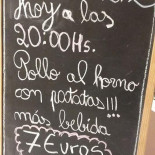 hoy a las
20:00Hs.
Pollo al horno
con patatas!!!
más bebida
7 Euros